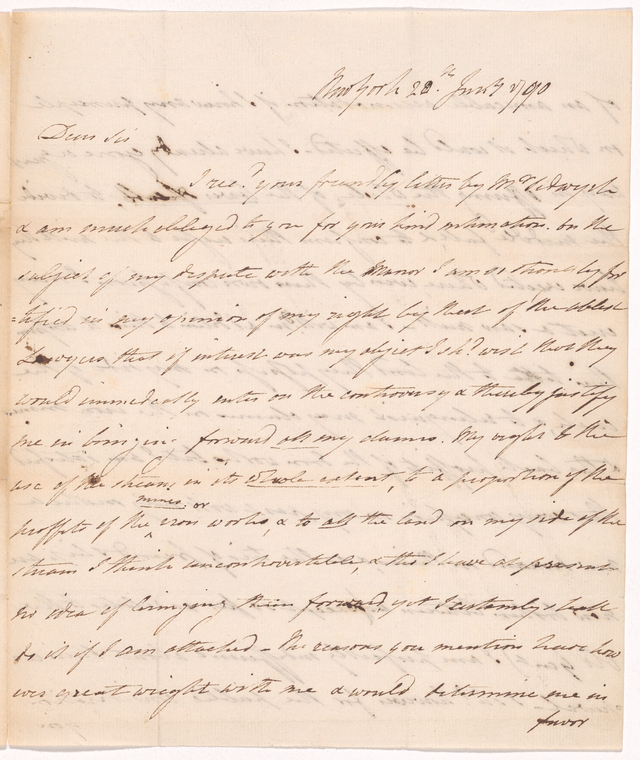 New York 20.th Jany 1790
Dear Sir
I rec.d your friendly letter by Mr. Sedwysh
& am much obliged to you for your kind intimation. on the
subject of my dispute with the Manor I am so strongly for
=tified in my opinion of my right by that of the ablest
Lawyers that if intrest was my object I shd. wish that they
would immediately enter on the controversy & thereby justify
me in bringing forward all my claims. My right to the
use of the stream in its whole extent, to a proportion of the
proffets of the mines or iron works, & to all the land on my side of the
stream I think uncontrovertible, & tho I have at present
no idea of bringing them forward yet I certainly shall
do it if I am attacked – The reasons you mention have how
ever great weight with me & would determine me in
favor